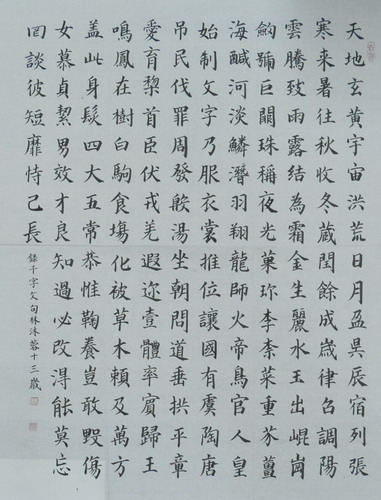 天地玄黃宇宙洪荒日月盈昃辰宿列張
寒来暑往秋收冬蔵閏餘成歲律召調陽
雲騰致雨露結為霜金生麗水玉出崐崗
劍號巨闕珠稱夜光菓珎李柰菜重芥薑
海鹹河淡鱗潛羽翔龍師火帝鳥官人皇
始制文字乃服衣裳推位讓國有虞陶唐
吊民伐罪周發殷湯坐朝問道垂拱平章
愛育黎首臣伏戎羌遐迩壹體率賓歸王
鳴鳳在樹白駒食場化被草木賴及萬方
盖此身髮四大五常恭惟鞠養豈敢毀傷
女慕貞絜男效才良知過必改得能莫忘
罔談彼短靡恃己長
錄千字文句林沐蓉十三歲